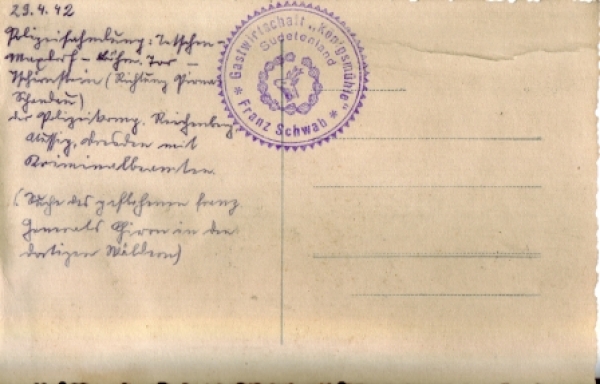 23.4.42
Polizeifahndung: Tetschen –
Maxdorf – Böhm. Tor –
Tschirnstein (Richtung Pirna
Schandau)
der Polizeikomp. Reichenberg,
Aussig, Dresden mit
Kriminalbeamten.
(Suche des geflohenen franz.
Generals Giron in den
dortigen Wäldern)
Gastwirtschaft „Königsmühle“
Sudetenland
* Franz Schwab *